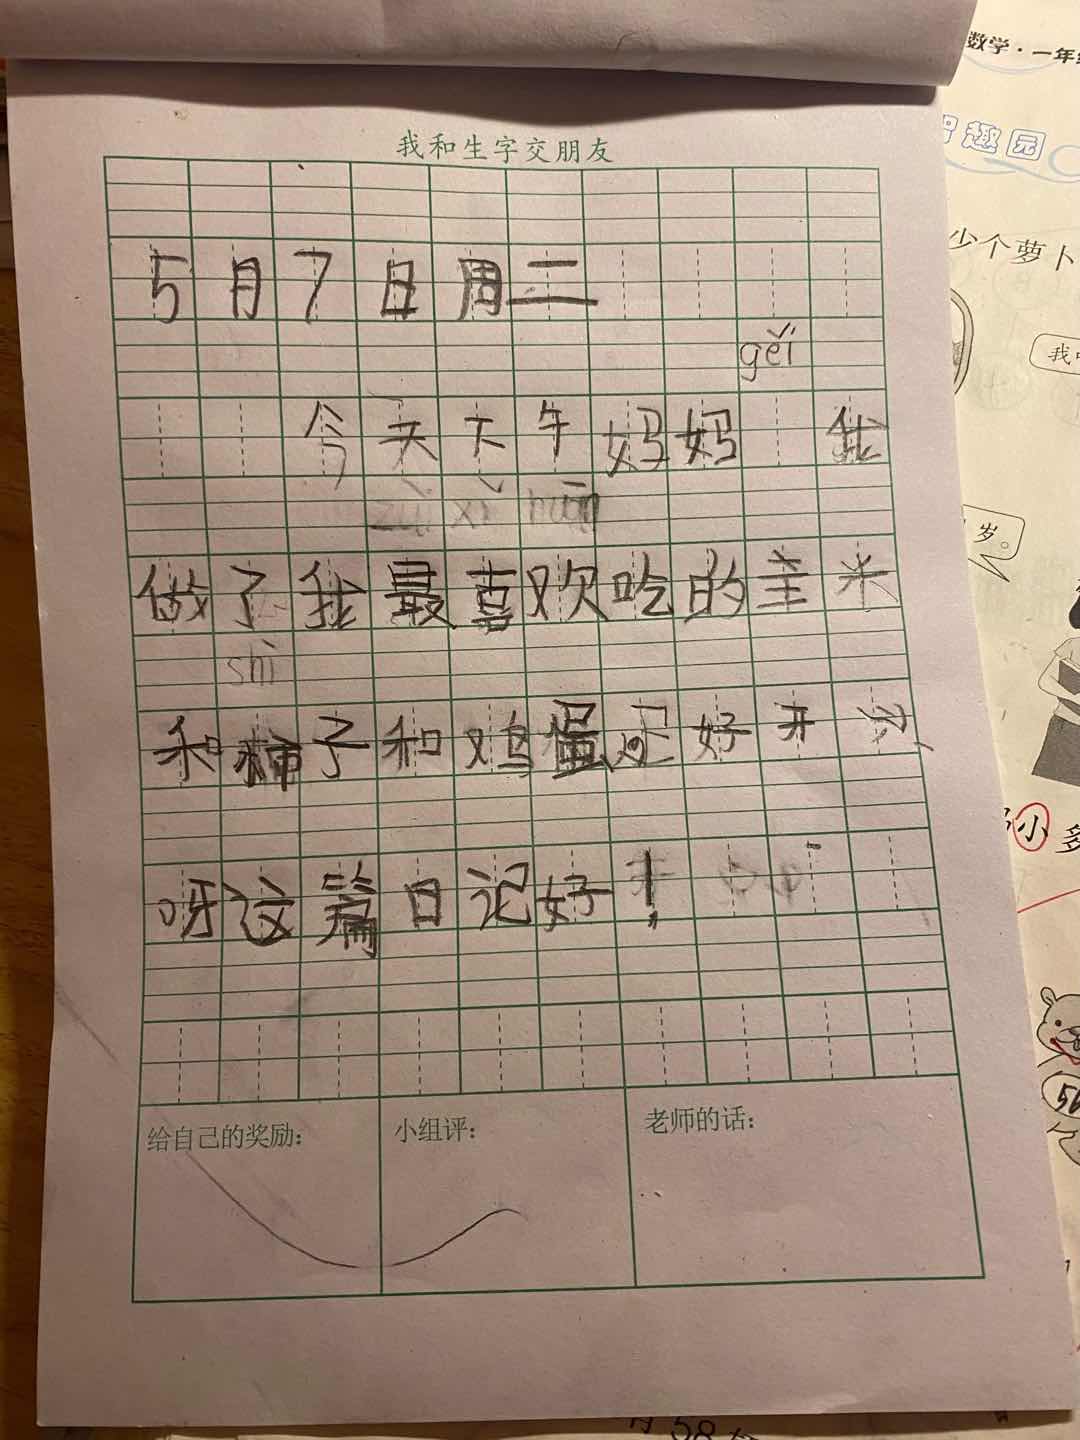 数学·一年级
趣园
我和生字交朋友
5月7日周二
少个萝卜
gěi
今天下午妈妈 我
zuì xǐ huān
岁。
做了我最喜欢吃的主米
shì
和柿子和鸡蛋还好开心
小多
呀这篇日记好!
给自己的奖励:
小组评:
老师的话:
58